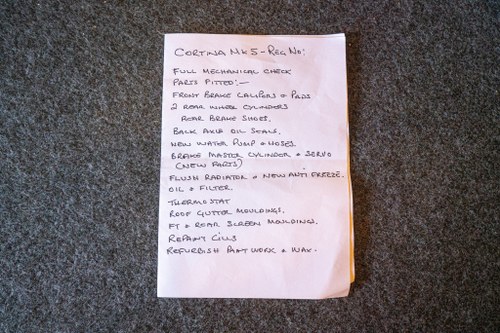 CORTINA MK5 - REG NO:
FULL MECHANICAL CHECK
PARTS FITTED:-
FRONT BRAKE CALIPERS & PADS
2 REAR WHEEL CYLINDERS
REAR BRAKE SHOES.
BACK AXLE OIL SEALS.
NEW WATER PUMP & HOSES.
BRAKE MASTER CYLINDER & SERVO
(NEW PARTS)
FLUSH RADIATOR & NEW ANTI FREEZE.
OIL & FILTER.
THERMOSTAT
ROOF GUTTER MOULDINGS.
FT & REAR SCREEN MOULDINGS.
REPAINT CILLS
REFURBISH PAINT WORK & WAX.